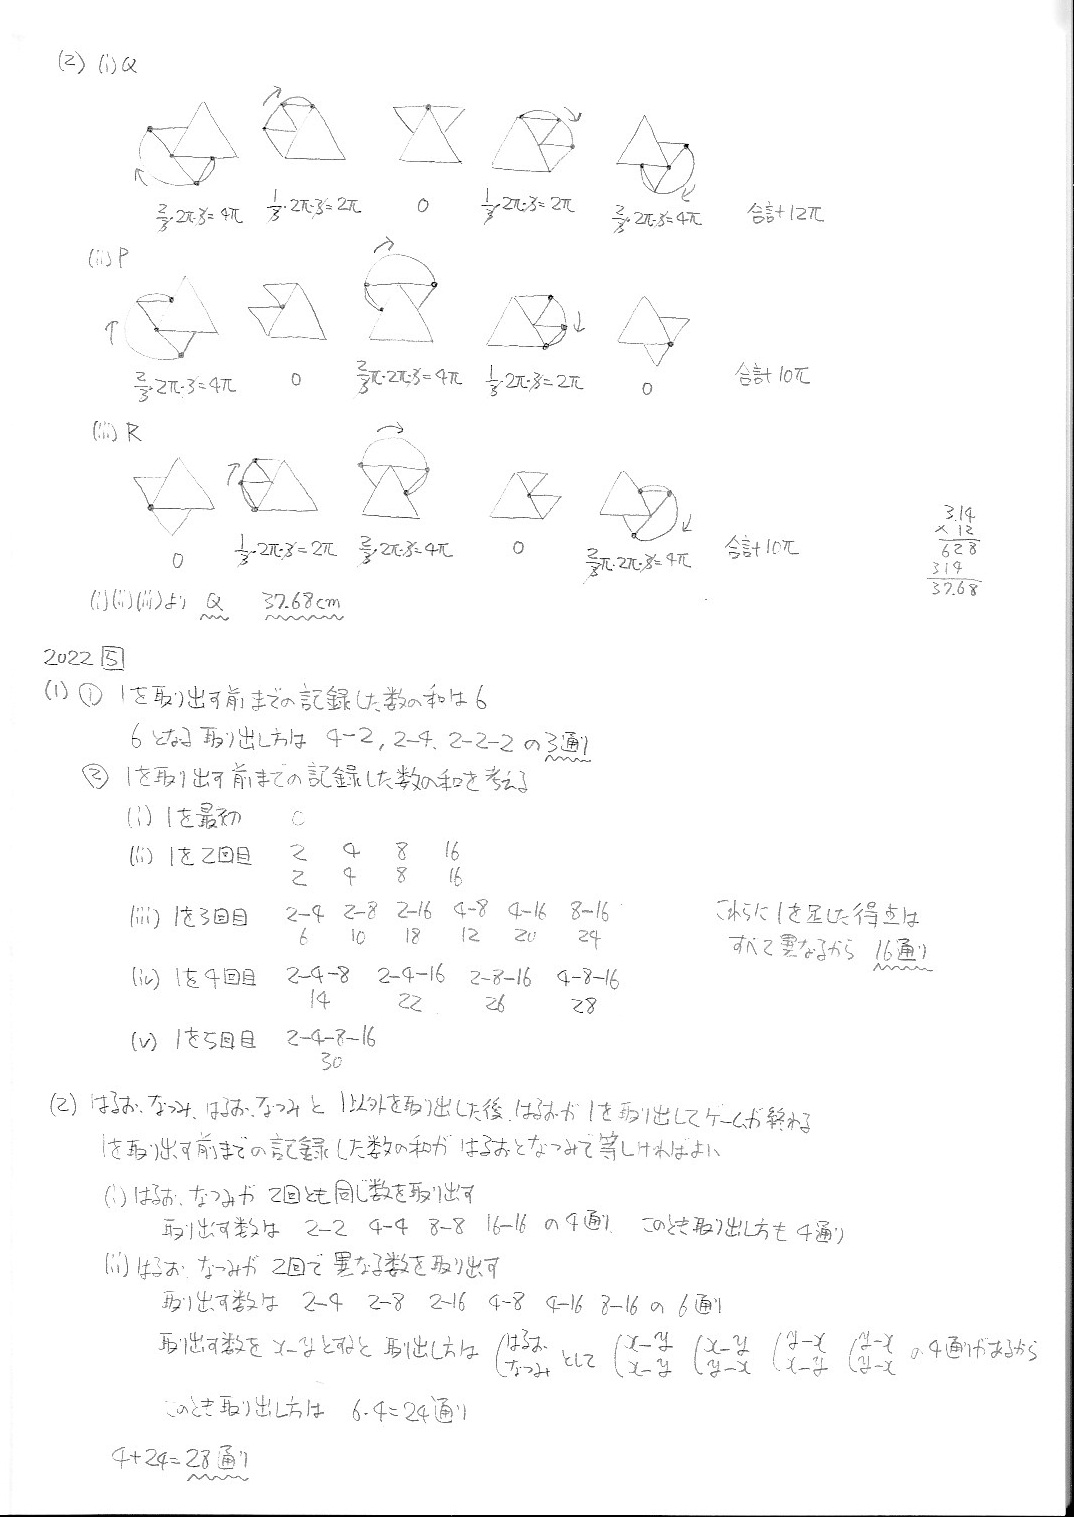 (2) (i) Q
2/3・2π・3=4π 1/3・2π・3=2π 0 1/3・2π・3=2π 2/3・2π・3=4π 合計12π
(ii) P
2/3・2π・3=4π 0 2/3π・2π・3=4π 1/3・2π・3=2π 0 合計10π
(iii) R
0 1/3・2π・3=2π 2/3・2π・3=4π 0 2/3π・2π・3=4π 合計10π
3.14
×12
628
314
37.68
(i)(ii)(iii)より Q 37.68cm
2022 5
(1) ① 1を取り出す前までの記録した数の和は6
6となる取り出し方は 4-2, 2-4, 2-2-2 の3通り
② 1を取り出す前までの記録した数の和を考える
(i) 1を最初 0
(ii) 1を2回目 2 4 8 16
2 4 8 16
(iii) 1を3回目 2-4 2-8 2-16 4-8 4-16 8-16
6 10 18 12 20 24
これらに1を足した得点は
すべて異なるから 16通り
(iv) 1を4回目 2-4-8 2-4-16 2-8-16 4-8-16
14 22 26 28
(v) 1を5回目 2-4-8-16
30
(2) はるお、なつみ、はるお、なつみと 1以外を取り出した後、はるおが1を取り出してゲームが終わる
1を取り出す前までの記録した数の和が はるおとなつみで等しければよい
(i) はるお、なつみが 2回とも同じ数を取り出す
取り出す数は 2-2 4-4 8-8 16-16 の4通り このとき取り出し方も4通り
(ii) はるお、なつみが 2回で異なる数を取り出す
取り出す数は 2-4 2-8 2-16 4-8 4-16 8-16 の6通り
取り出す数を x-yとすると 取り出し方は (はるお なつみ として (x-y x-y (x-y y-x (y-x x-y (y-x y-x の4通りがあるから
このとき取り出し方は 6・4=24通り
4+24=28通り